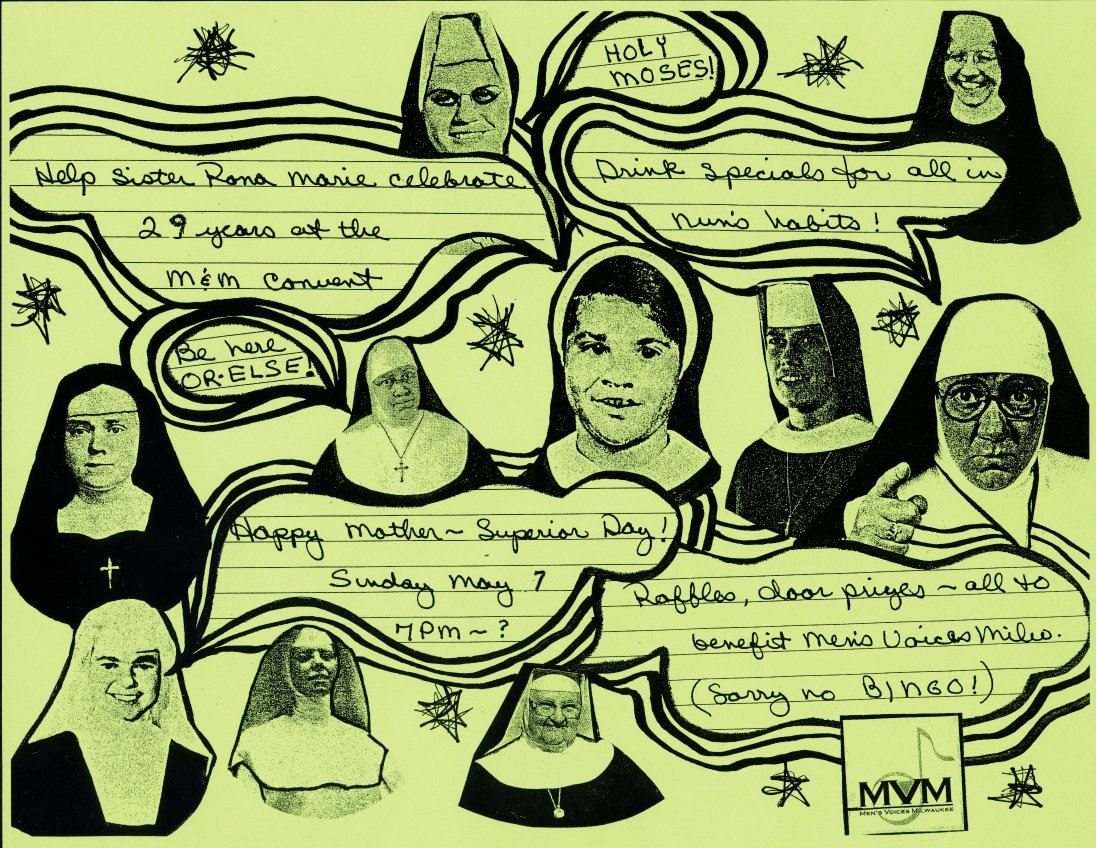 HOLY
MOSES!
Help Sister Rona Marie celebrate
29 years at the
M&M Convent
Drink Specials for all in
nun's habits!
Be here
OR·ELSE!
Happy Mother~Superior Day!
Sunday May 7
7PM~?
Raffles, door prizes ~ all to
benefit Men's Voices Milw.
(Sorry no BINGO!)
MVM
MEN'S VOICES MILWAUKEE